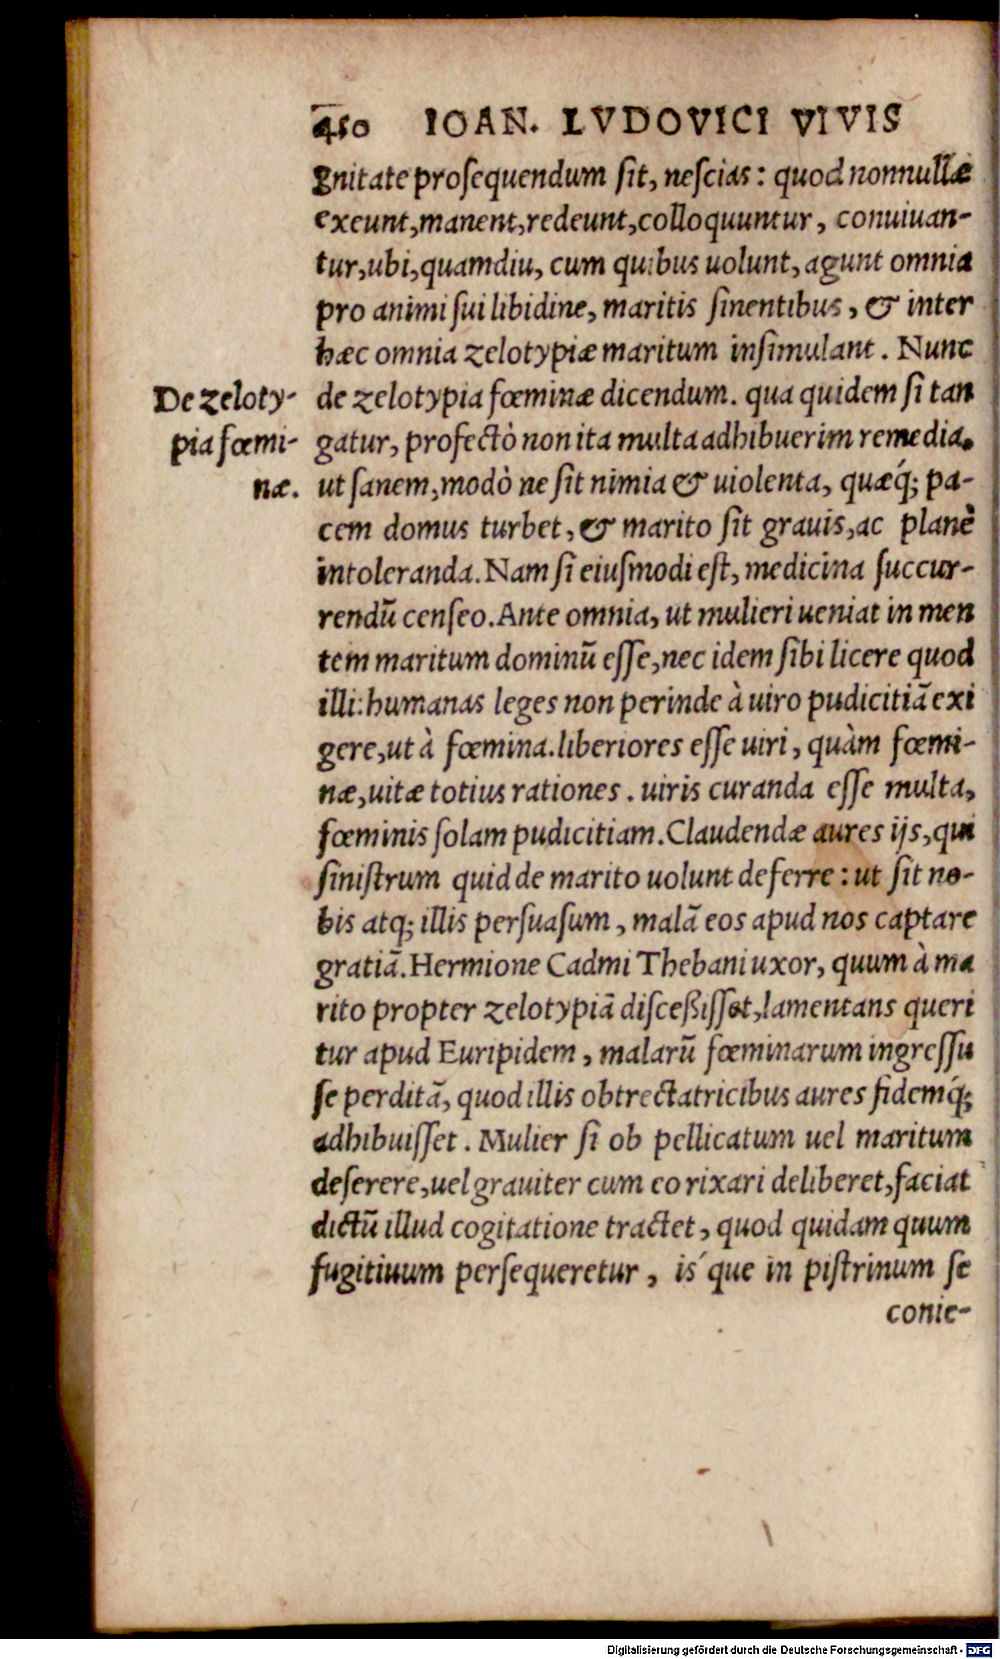 450 IOAN. LVDOVICI VIVIS
gnitate prosequendum sit, nescias: quod nonnullæ
exeunt, manent, redeunt, colloquuntur, conuiuan-
tur, ubi, quamdiu, cum quibus uolunt, agunt omnia
pro animi sui libidine, maritis sinentibus, & inter
hæc omnia zelotypiæ maritum insimulant. Nunc
De zeloty-
pia fœmi-
næ.
de zelotypia fœminæ dicendum. qua quidem si tan
gatur, profectò non ita multa adhibuerim remedia,
ut sanem, modò ne sit nimia & uiolenta, quæq́; pa-
cem domus turbet, & marito sit grauis, ac planè
intoleranda. Nam si eiusmodi est, medicina succur-
rendū censeo. Ante omnia, ut mulieri ueniat in men
tem maritum dominū esse, nec idem sibi licere quod
illi: humanas leges non perinde à uiro pudicitiā exi
gere, ut à fœmina. liberiores esse uiri, quàm fœmi-
næ, uitæ totius rationes. uiris curanda esse multa,
fœminis solam pudicitiam. Claudendæ aures ijs, qui
sinistrum quid de marito uolunt deferre: ut sit no-
bis atq; illis persuasum, malā eos apud nos captare
gratiā. Hermione Cadmi Thebani uxor, quum à ma
rito propter zelotypiā discessisset, lamentans queri
tur apud Euripidem, malarū fœminarum ingressu
se perditā, quod illis obtrectatricibus aures fidemq́;
adhibuisset. Mulier si ob pellicatum uel maritum
deserere, uel grauiter cum eo rixari deliberet, faciat
dictū illud cogitatione tractet, quod quidam quum
fugitiuum persequeretur, is´que in pistrinum se
conie-
Digitalisierung gefördert durch die Deutsche Forschungsgemeinschaft - DFG